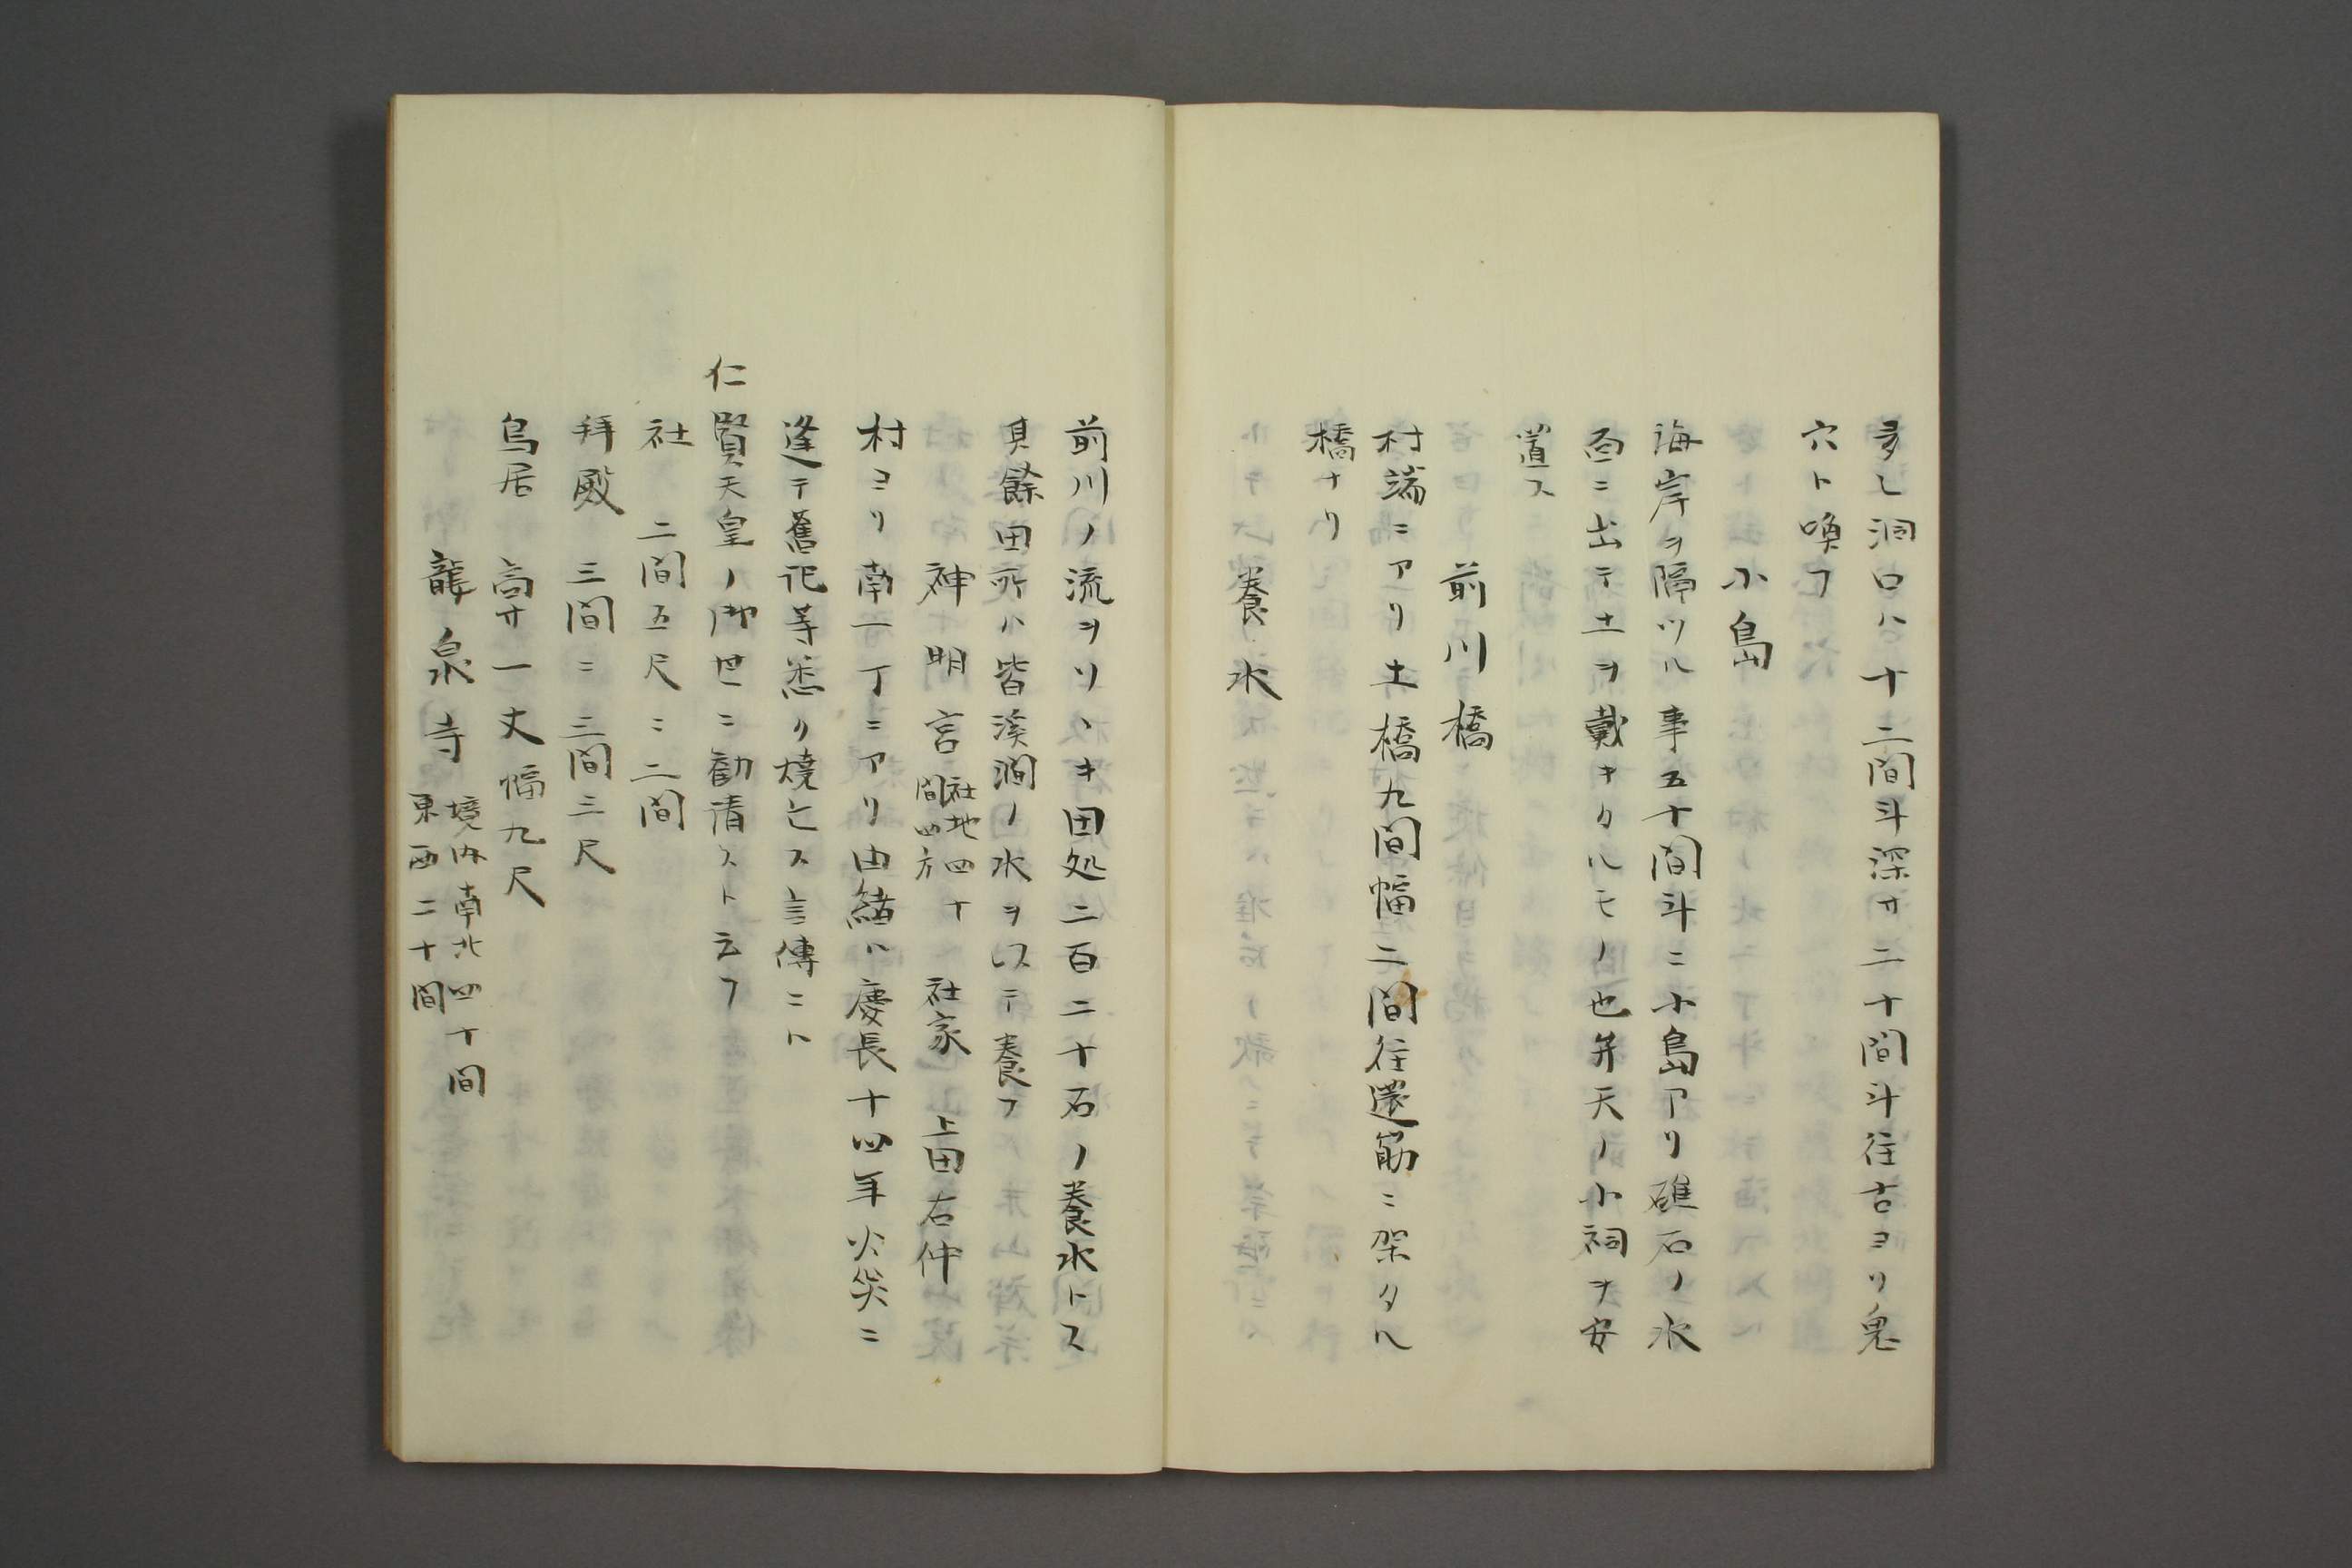 多し洞口ハ十二間斗深サ二十間斗往古ヨリ鬼
穴ト喚フ
小島
海岸ヲ隔ツル事五十間斗ニ小島アリ礁石ノ水
面ニ出テ土ヲ戴キタルモノ也弁天ノ小祠ヲ安
置ス
前川橋
村端ニアリ土橋九間幅二間往還筋ニ架タル
橋ナリ
養水
前川ノ流ヲソヽキ田処二百二十石ノ養水トス
其餘田所ハ皆溪澗ノ水ヲ以テ養フ
神明宮 社地四十間四方 社家 上田右仲
村ヨリ南一丁ニアリ由緒ハ慶長十四年火災ニ
逢テ舊記等悉ク燒亡ス言傳ニハ
仁賢天皇ノ御世ニ勧請スト云フ
社 二間五尺ニ二間
拜殿 三間ニ二間三尺
鳥居 高サ一丈幅九尺
龍泉寺 境内南北四十間東西二十間